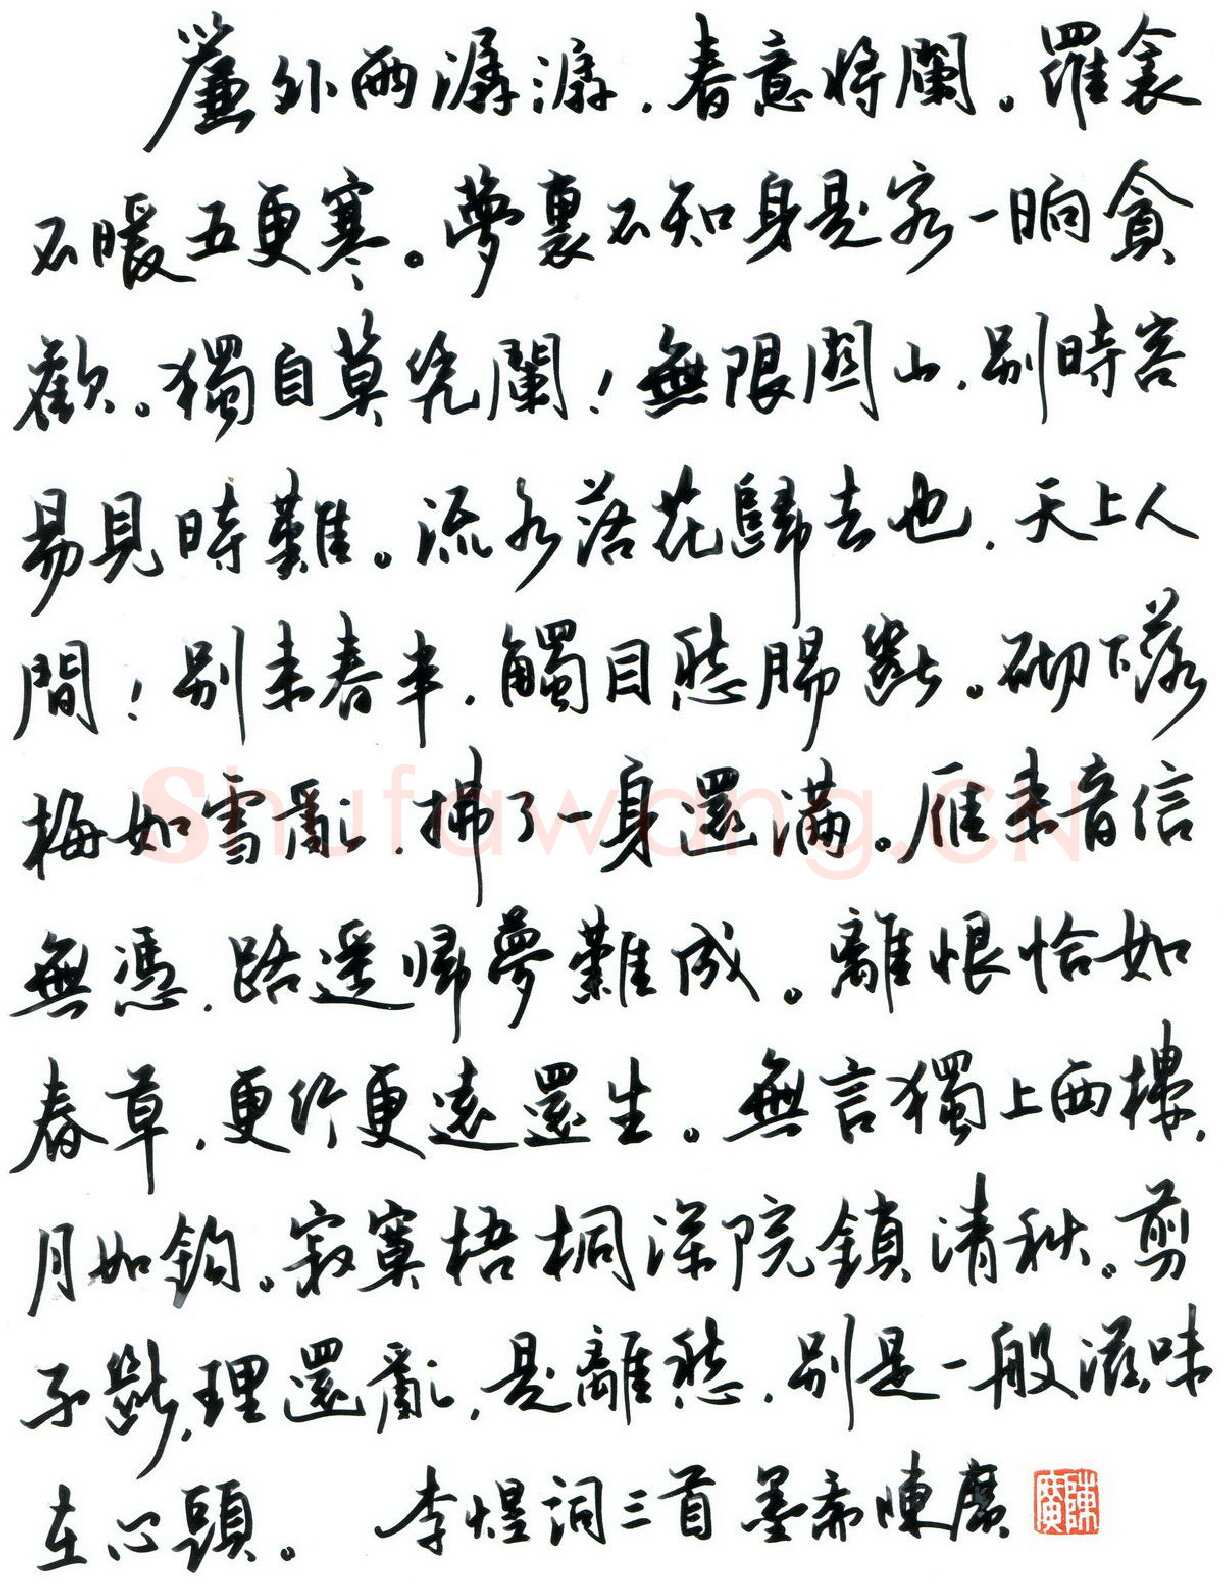 簾外雨潺潺，春意將闌。羅衾
不暖五更寒。夢裏不知身是客一晌貪
歡。獨自莫凭闌！無限關山，別時容
易見時難。流水落花歸去也，天上人
間！別來春半，觸目愁腸斷。砌下落
梅如雪亂，拂了一身還滿。雁來音信
無憑，路遙歸夢難成。離恨恰如
春草，更行更遠還生。無言獨上西樓，
月如鈎。寂寞梧桐深院鎖清秋。剪
不斷，理還亂，是離愁，別是一般滋味
在心頭。 李煜詞三首 墨齋陳廣
陳廣
ShufawangCN